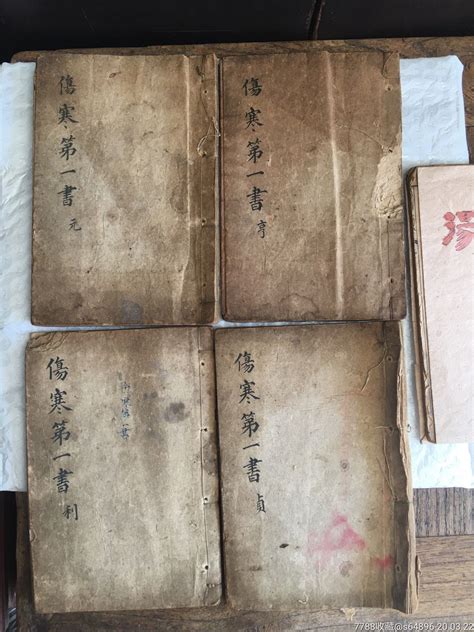 傷寒第一書 元
傷寒第一書 亨
傷寒第一書 利
傷寒第一書 貞
7788收藏@s64896 20.03.22